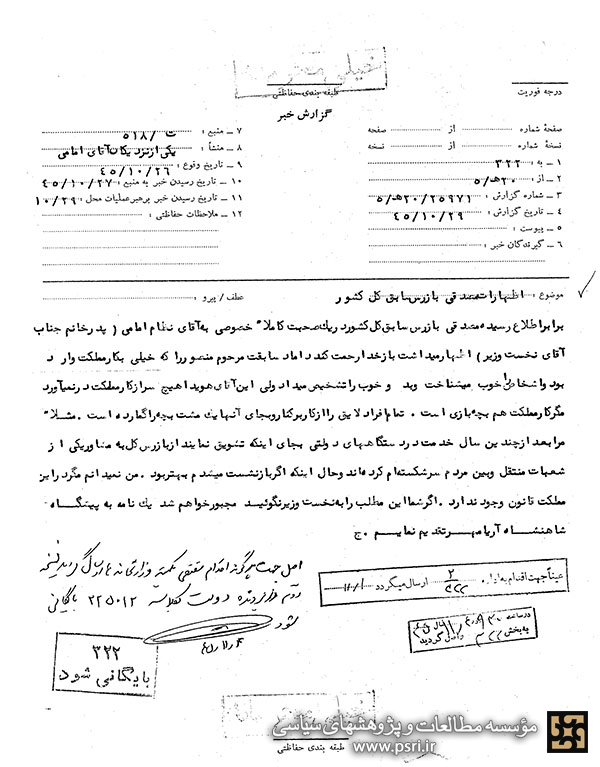 خیلی محرمانه
طبقه بندی حفاظتی
درجه فوریت
گزارش خبر
صفحهٔ شماره از صفحه
نسخهٔ شماره از نسخه
۱ ـ به : ۳۲۲
۲ ـ از : ۲۰هـ/۵
۳ ـ شماره گزارش : ۲۰/۲۵۹۷۱هـ/۵
۴ ـ تاریخ گزارش : ۴۵/۱۰/۲۹
۵ ـ پیوست :
۶ ـ گیرندگان خبر :
۷ ـ منبع : ت /۵۱۸
۸ ـ منشأ : یکی از نزدیکان آقای امامی
۹ ـ تاریخ وقوع : ۴۵/۱۰/۲۶
۱۰ ـ تاریخ رسیدن خبر به منبع : ۴۵/۱۰/۲۷
۱۱ ـ تاریخ رسیدن خبر برهبر عملیات محل : ۱۰/۲۹
۱۲ ـ ملاحظات حفاظتی :
موضوع : اظهارات مصدقی بازرس سابق کل کشور عطف / پیرو :
برابر اطلاع رسیده مصدقی بازرس سابق کل کشور در یک صحبت کاملا" خصوصی به آقای نظام امامی ( پدر خانم جناب
آقای نخست وزیر ) اظهار میداشت باز خدا رحمت کند داماد سابقت مرحوم منصور را که خیلی بکار مملکت وارد
بود و اشخاص را خوب میشناخت وبد و خوب را تشخیص میداد ولی این آقای هویدا هیچ سر از کار مملکت در نمیآورد
مگر کار مملکت هم بچه بازی است ۰ تمام افراد لایق را از کار برکنار و بجای آنها یک مشت بچه را گمارده است ۰ مثلا"
مرا بعد از چندین سال خدمت در دستگاههای دولتی بجای اینکه تشویق نمایند از بازرس کل به مشاور یکی از
شعبات منتقل و بین مردم سرشکسته ام کرده اند و حال اینکه اگر بازنشست میشدم بهتر بود ۰ من نمیدانم مگر در این
مملکت قانون وجود ندارد ۰ اگر شما این مطلب را به نخست وزیر نگوئید مجبور خواهم شد یک نامه به پیشگاه
شاهنشاه آریامهر تقدیم نمایم ۰ ج
اصل جهت هرگونه اقدام مقتضی به کمیته وزارتخانه ها ارسال گردید نسخه
دوم در پرونده دولت کلاسه ۲۲۵۰۱۲ بایگانی
شود
عیناً جهت اقدام به اداره ۲/۳۲۲ ارسال میگردد
در ساعت
به بخش ۳۲۲ واصل گردید
۳۲۲
بایگانی شود
طبقه بندی حفاظتی
مؤسسه مطالعات و پژوهشهای سیاسی
www.psri.ir